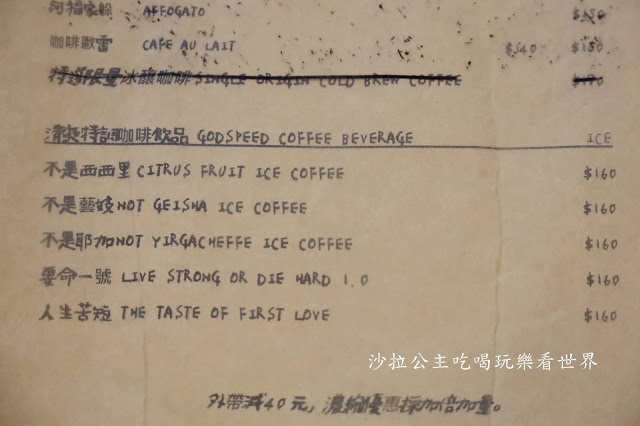 阿福家朵 AFFOGATO $150
咖啡歐蕾 CAFE AU LAIT $140 $150
特選限量冰釀咖啡 SINGLE ORIGIN COLD BREW COFFEE $170
清爽特調咖啡飲品 GODSPEED COFFEE BEVERAGE ICE
不是西西里 CITRUS FRUIT ICE COFFEE $160
不是藝妓 NOT GEISHA ICE COFFEE $160
不是耶加 NOT YIRGACHEFFE ICE COFFEE $160
要命一號 LIVE STRONG OR DIE HARD 1.0 $160
人生苦短 THE TASTE OF FIRST LOVE $160
沙拉公主吃喝玩樂看世界
外帶減40元，濃縮優惠採加倍加量。